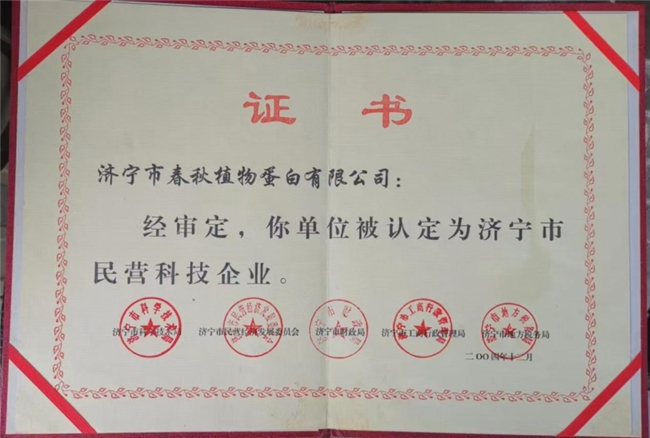 证书
济宁市春秋植物蛋白有限公司:
经审定,你单位被认定为济宁市
民营科技企业。
济宁市科学技术局 济宁市民营经济发展委员会 济宁市财政局 济宁市工商行政管理局 济宁市地方税务局
二〇〇四年十二月